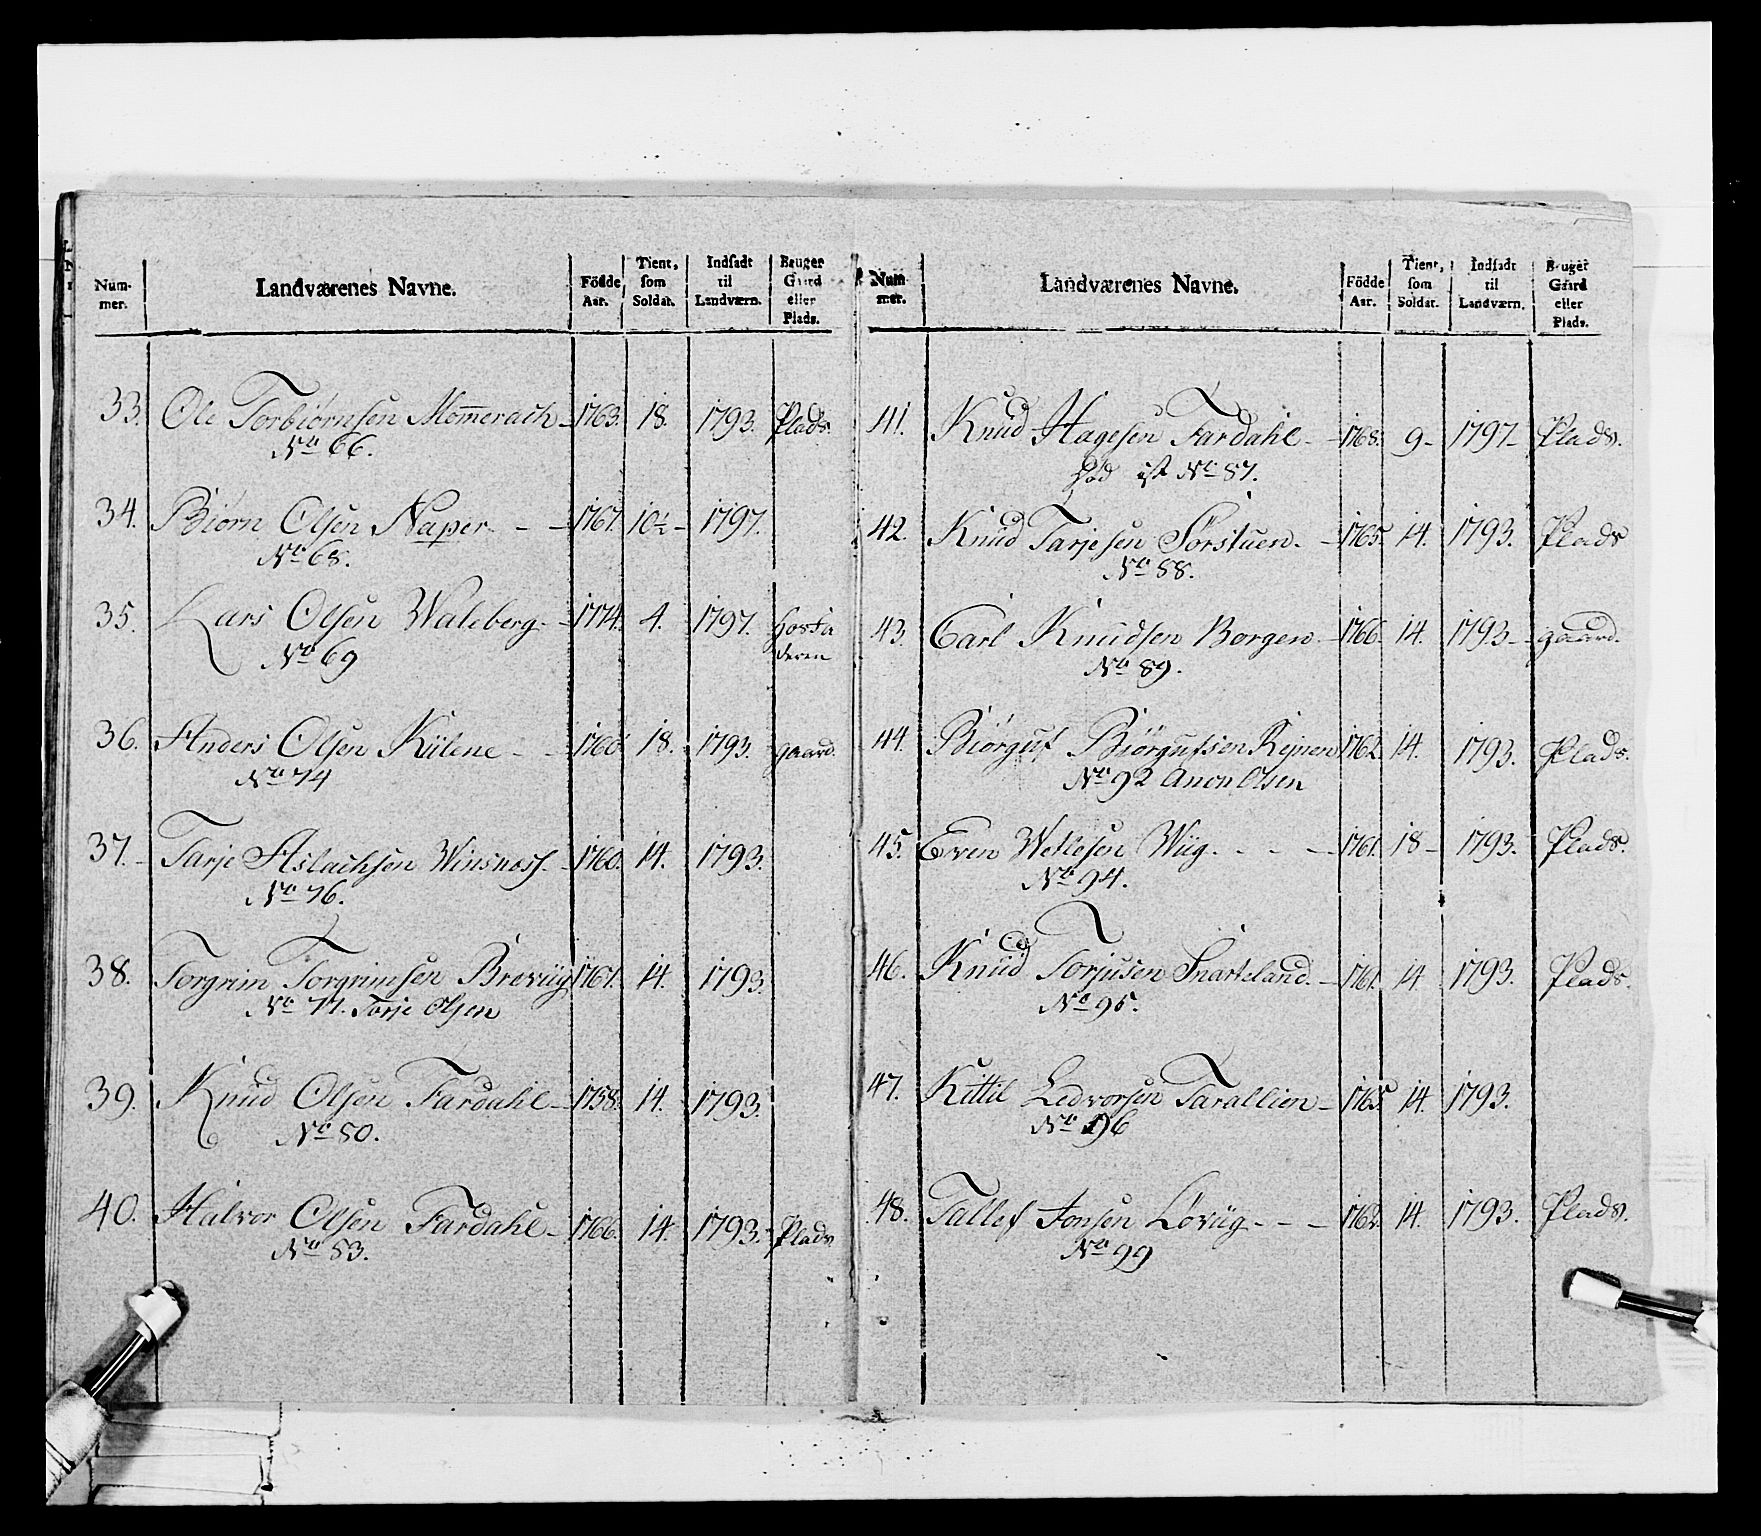 Num- mer. Landværenes Navne. Födde Aar. Tient, som Soldat. Indsadt til Landværn. Bruger Gaard eller Plads.
33. Ole Torbiørnsen Mom̅erach - 1763. 18. 1793. Plads.
No 66.
34. Biørn Olsen Naper - - 1767. 10½ - 1797.
No 68.
35. Lars Olsen Waleberg. - 1774. 4. 1797.
No 69
36. Anders Olsen Kiilene - - 1760. 18. 1793. gaard.
No 74
37. - Tarje Aslachsen Winsness. - 1760. 14. 1793.
No 76.
38. Torgrim Torgrimsen Breviig 1767. 14. 1793.
No 77. Torje Olsen
39. Knud Olsen Fardahl - 1758. 14. 1793.
No 80.
40. Halvor Olsen Fardahl - 1766. 14. 1793. - Plads.
No 83.
Num- mer. Landværenes Navne. Födde Aar. Tient, som Soldat. Indsadt til Landværn. Bruger Gaard eller Plads.
41. Knud Hagesen Fardahl - 1768. 9 - 1797 - Plads.
No 87.
42. Knud Tarjesen Sørstuen. - 1765. 14. 1793. Plads
No 88.
43. Carl Knudsen Borgen - 1766. 14. 1793 - gaard.
No 89.
44. Biørguf Biørgufsen Rejnen 1762. 14. 1793. Plads.
No 92 Anon Olsen
45. Even Wetlesen Wiig. - - - 1761. 18 - 1793. Plads.
No 94.
46. Knud Torjusen Snarteland. - 1761. 14 1793. Plads.
No 95.
47. Kittil Ledvorsen Tarallien - 1765. 14. 1793.
No 96
48. Tallef Jonsen Løviig - - - 1762. 14. 1793. Plads.
No 99